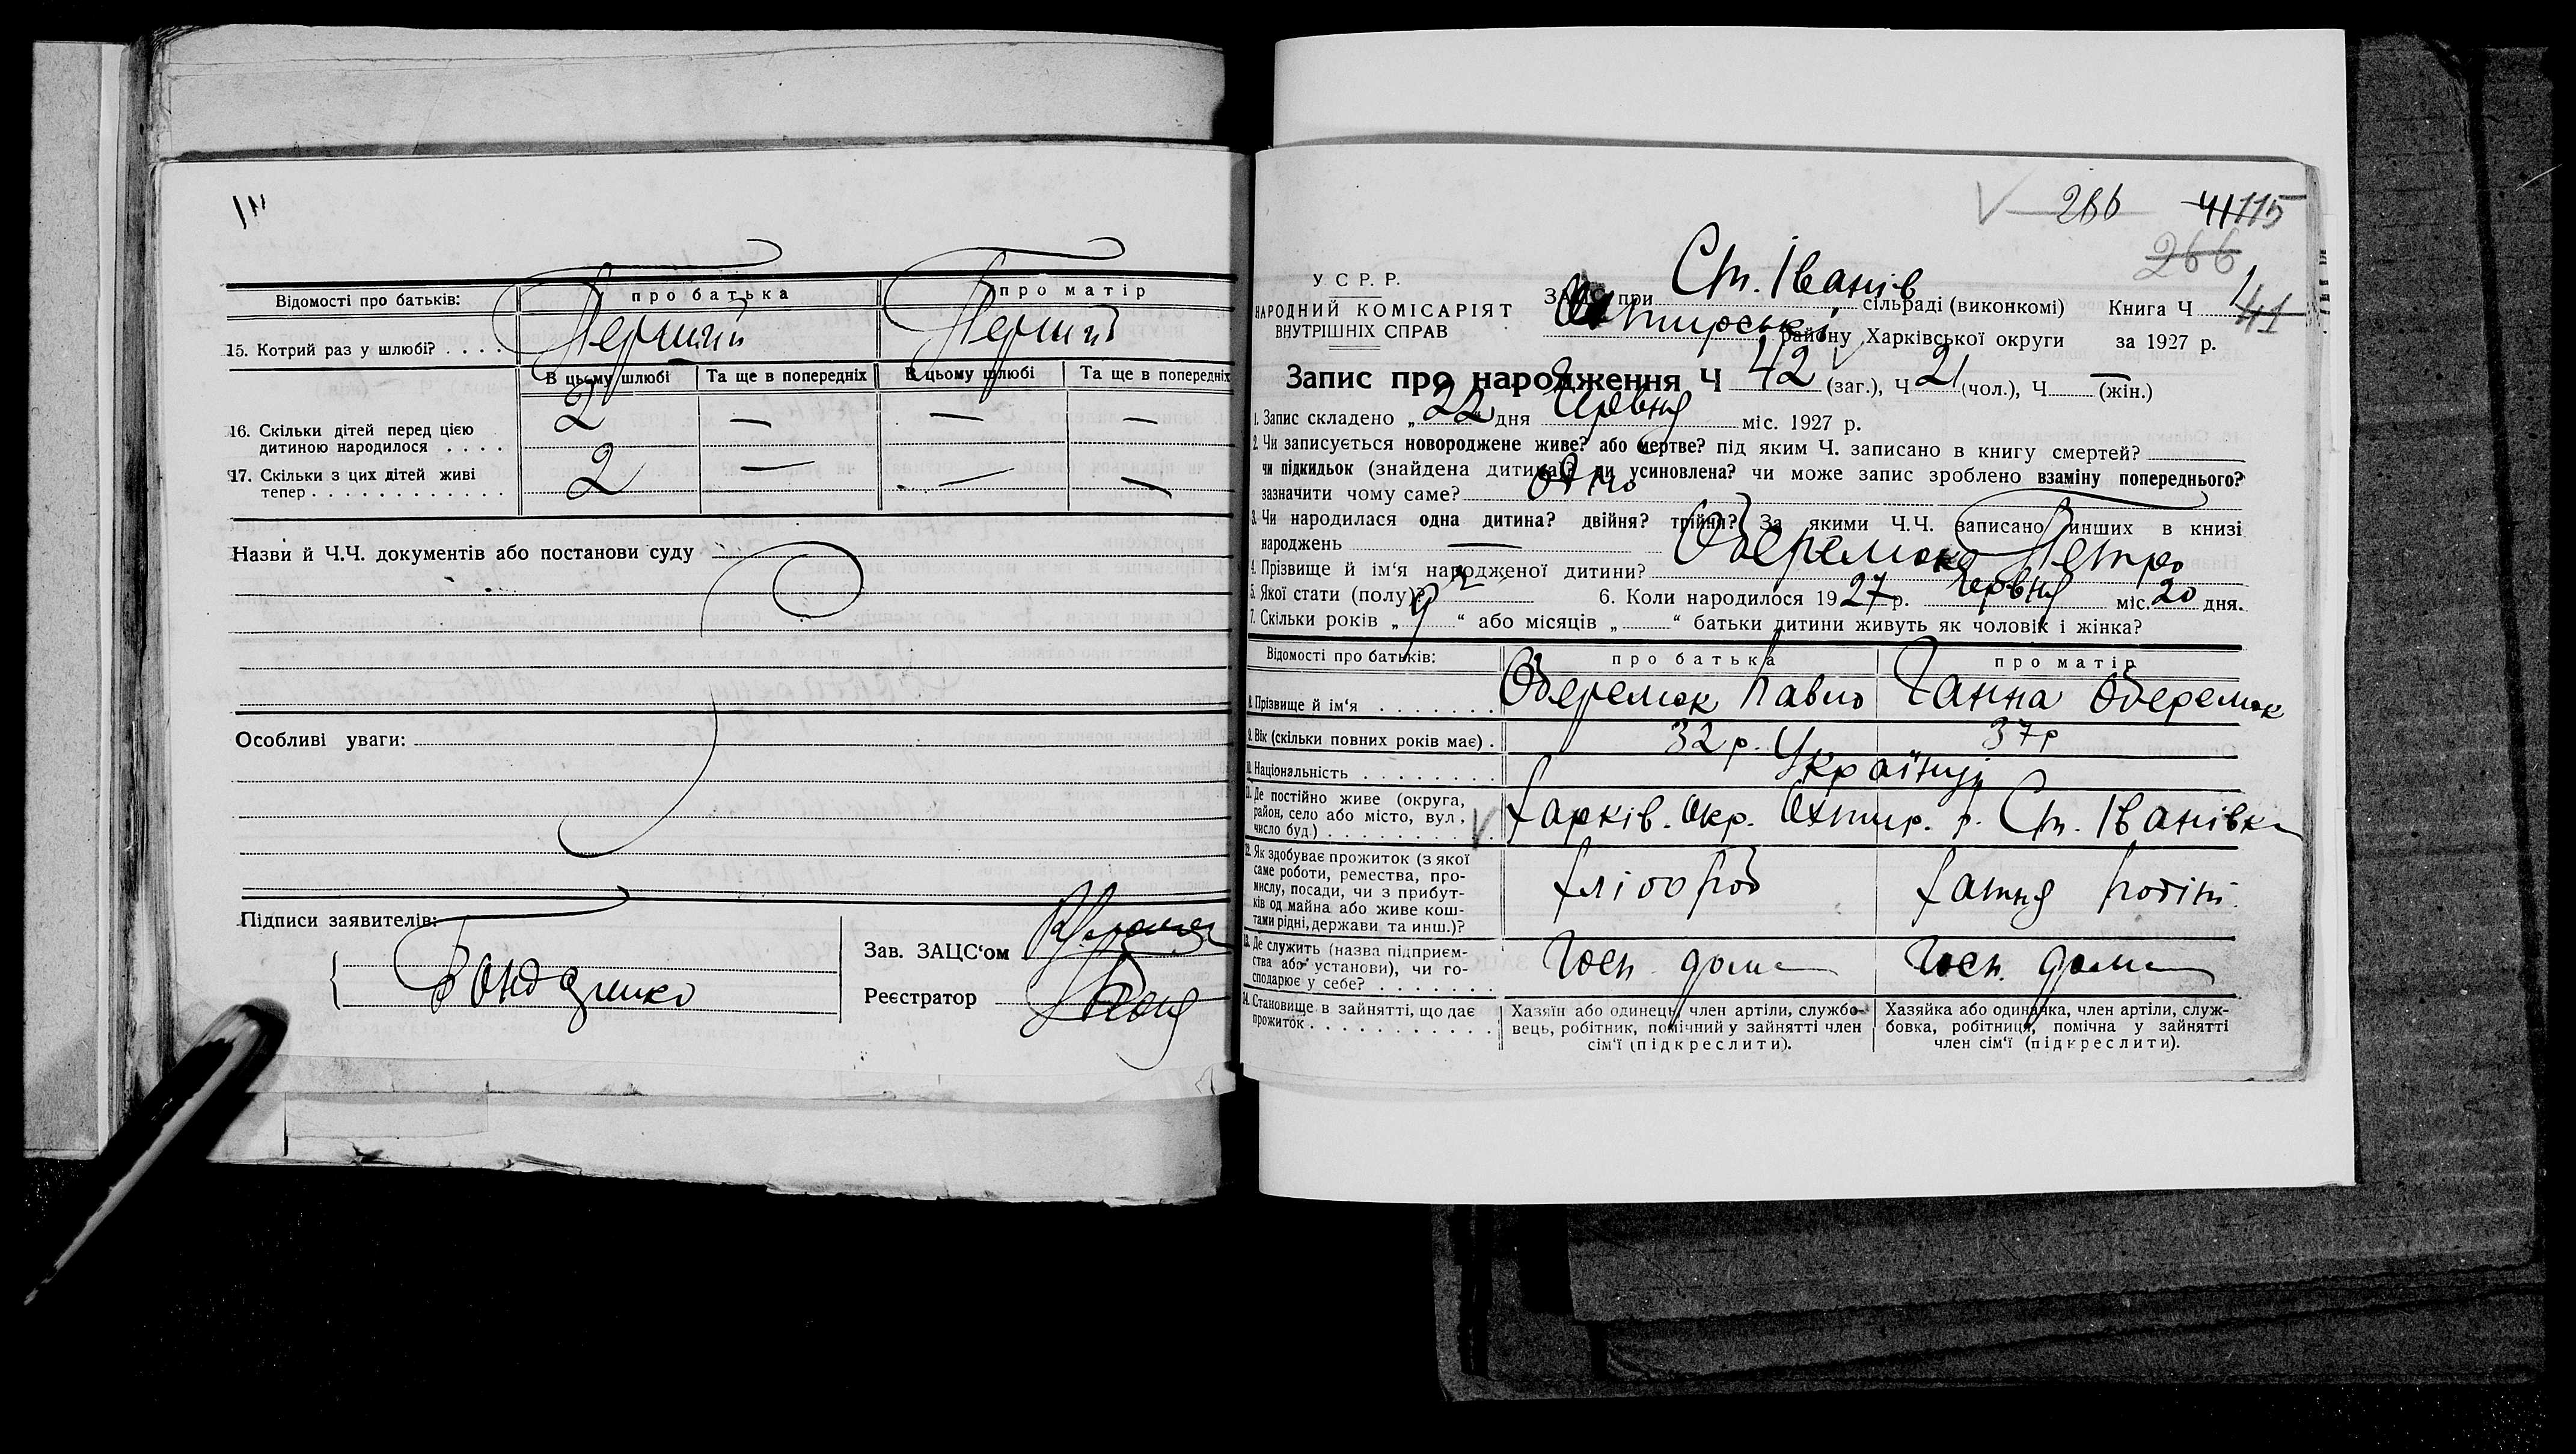 Відомості про батьків: про батька про матір
15. Котрий раз у шлюбі? . . . . Перший Перший
В цьому шлюбі Та ще в попередніх В цьому шлюбі Та ще в попередніх
16. Скільки дітей перед цією
дитиною народилося . . . . 2 — — —
17. Скільки з цих дітей живі
тепер . . . . . . . . . . . . 2 — — —
Назви й Ч.Ч. документів або постанови суду
Особливі уваги:
Підписи заявителів:
Бондаренко
Зав. ЗАЦС‘ом
Реєстратор
266 41 115
266
У С Р. Р.
НАРОДНИЙ КОМІСАРІЯТ
ВНУТРІШНІХ СПРАВ
ЗАЦС при Ст. Іванів сільраді (виконкомі) Книга Ч 1 41
Охтирські району Харківської округи за 1927 р.
Запис про народження Ч 42 (заг.), Ч 21 (чол.), Ч — (жін.)
1. Запис складено „ 22 дня Червня міс. 1927 р.
2. Чи записується новороджене живе? або мертве? під яким Ч. записано в книгу смертей?
чи підкидьок (знайдена дитина)? чи усиновлена? чи може запис зроблено взаміну попереднього?
зазначити чому саме?
3. Чи народилася одна дитина? двійня? трійня? За якими Ч.Ч. записано инших в книзі
народжень —
4. Прізвище й ім‘я народженої дитини? Оберемок Петро
5. Якої стати (полу)? ч 6. Коли народилося 1927 р. Червня міс. 20 дня.
7. Скільки років „ 9 “ або місяців „ “ батьки дитини живуть як чоловік і жінка?
Відомості про батьків: про батька про матір
8. Прізвище й ім‘я . . . . . . . Оберемок Павло Ганна Оберемок
9. Вік (скільки повних років має) . 32 р. 37 р
10. Національність . . . . . . . . Українці
11. Де постійно живе (округа,
район, село або місто, вул.,
число буд.) . . . . . . . . . . Харків. Окр. Охтир. р. Ст. Іванівка
12. Як здобуває прожиток (з якої
саме роботи, ремества, про-
мислу, посади, чи з прибут-
ків од майна або живе кош-
тами рідні, держави та инш.)? Хлібороб Хатня робітн.
13. Де служить (назва підприєм-
ства або установи), чи го-
сподарює у себе? . . . . . . . Госп. дома Госп. дома
14. Становище в зайнятті, що дає
прожиток . . . . . . . . . . .
Хазяїн або одинець, член артіли, службо-
вець, робітник, помічний у зайнятті член
сім‘ї (підкреслити).
Хазяйка або одиначка, член артіли, служ-
бовка, робітниця, помічна у зайнятті
член сім‘ї (підкреслити).